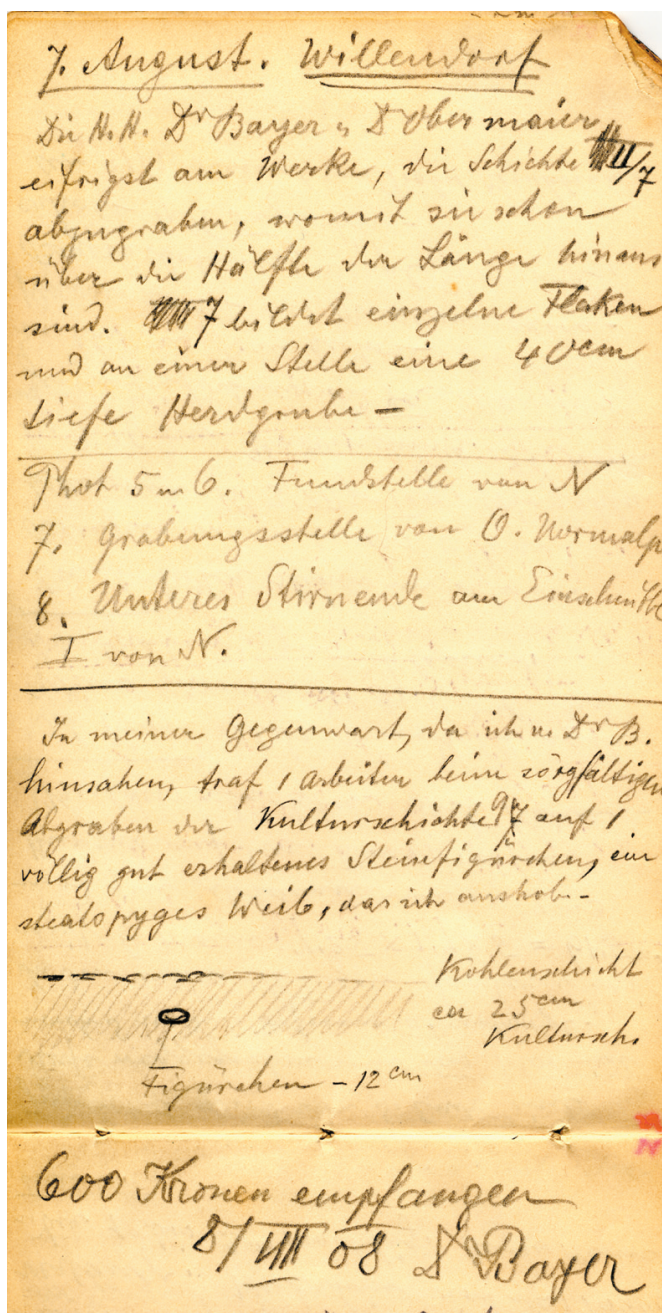 7. August. Willendorf
Die H.H. Dr Bayer u. Dr Obermaier
eifrigst am Werke, die Schichte II/7
abzugraben, womit sie schon
über die Hälfte der Länge hinaus
sind. 7 bildet einzelne Flaken
und an einer Stelle eine 40cm
tiefe Herdgrube –
Phot 5 u 6. Fundstelle von N
7. Grabungsstelle von O. Normalp
8. Unteres Stirnende am
I von N.
In meiner Gegenwart, da ich u. Dr B.
hinsahen, traf 1 Arbeiter beim sorgfältigen
Abgraben der Kulturschichte auf 1
völlig gut erhaltenes Steinfigürchen, ein
steatopyges Weib, das ich aushob. –
Kohlenschicht
ca 25cm
Kultursch.
Figürchen – 12 cm
600 Kronen empfangen
8/VIII 08 Dr Bayer